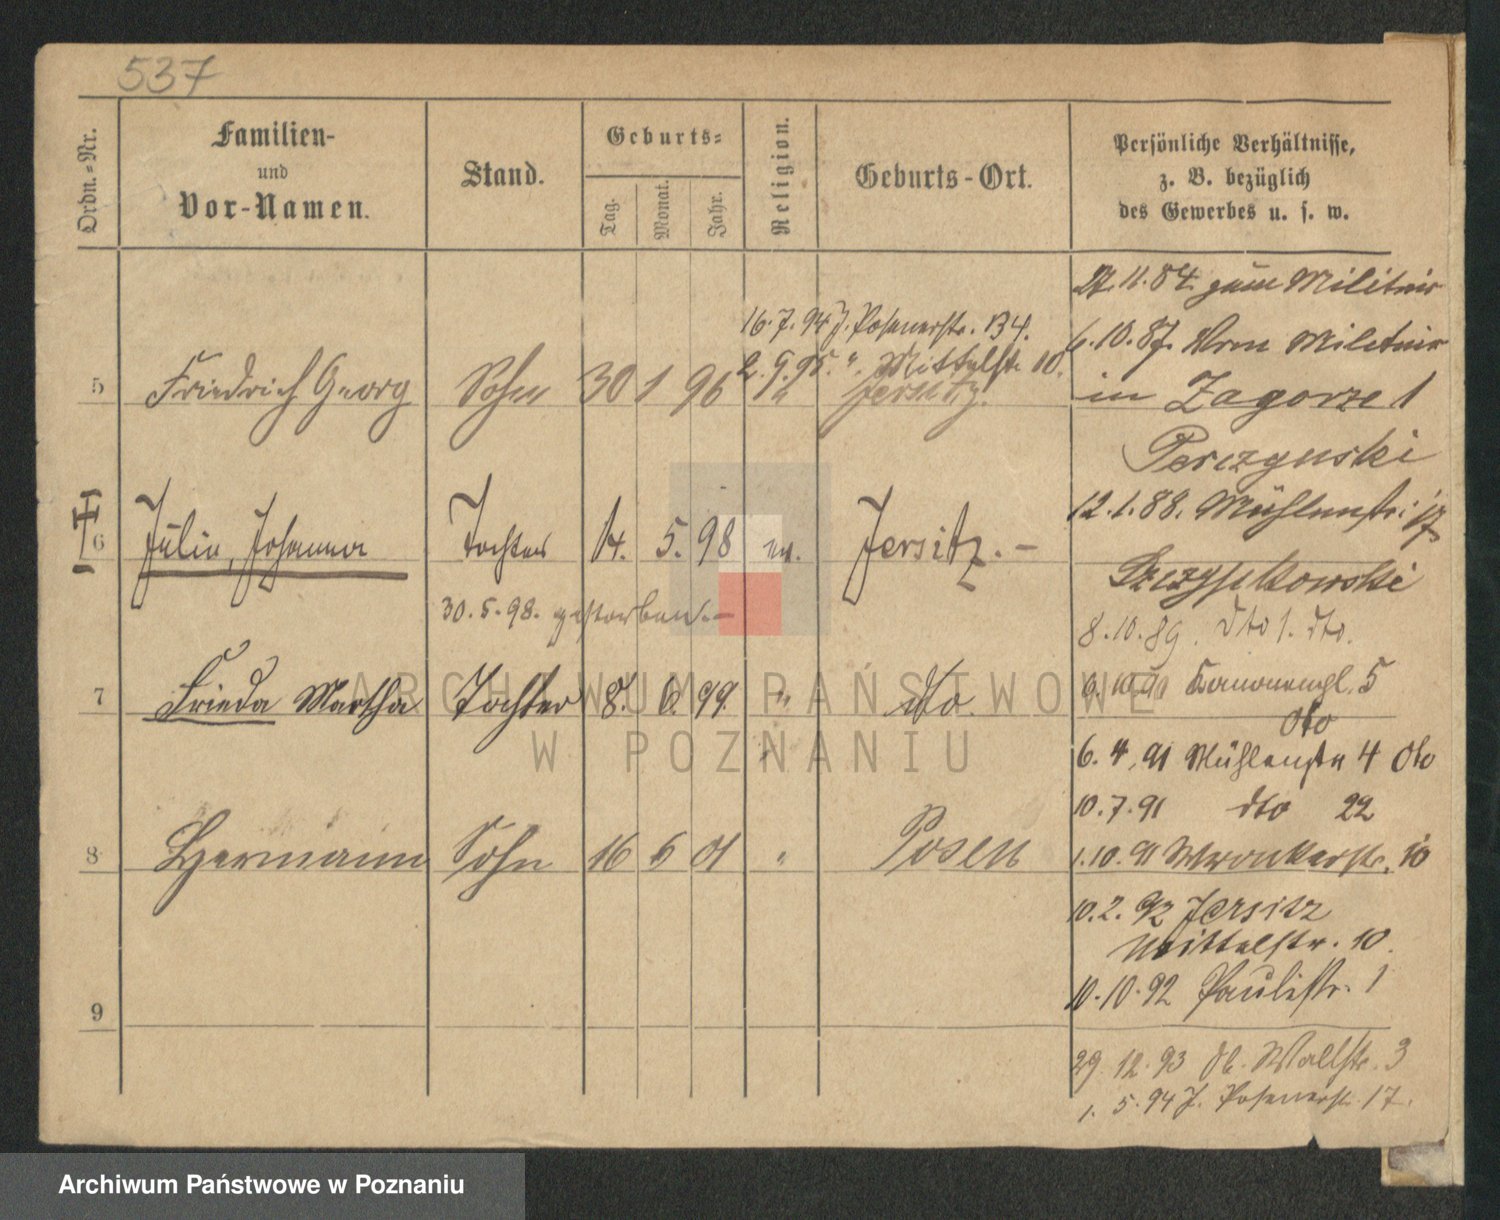 537
Ordn.-Nr.
Familien-
und
Vor-Namen.
Stand.
Geburts-
Tag.
Monat.
Jahr.
Religion.
Geburts-Ort.
Persönliche Verhältnisse,
z. B. bezüglich
des Gewerbes u. s. w.
11.84 zum Militair
6.10.87. Vom Militair
in Zagorze 1
16.7.94 J. Posenerstr. 134.
2.9.95. " Mittelstr. 10.
5 Friedrich Georg Sohn 30 1 96 " Jersitz.
12.1.88. Mühlenstr.
6 Julie, Johanna Tochter 14. 5. 98 ev. Jersitz.-
30.5.98. gestorben.-
8.10.89. dto 1. dto.
7 Frieda Martha Tochter 8. 6. 99. " dto.
Kanonengl. 5
dto
6.4.91 Mühlenstr 4 dto
10.7.91 dto 22
8 Hermann Sohn 16 6 01 " Posen
1.10.91 Wronkerstr. 10
10.2.92 Jersitz
Mittelstr. 10.
10.10.92 Paulistr. 1
9
29.12.93 Wallstr. 3
1.5.94 J. Posenerstr. 17.
ARCHIWUM PAŃSTWOWE
W POZNANIU
Archiwum Państwowe w Poznaniu